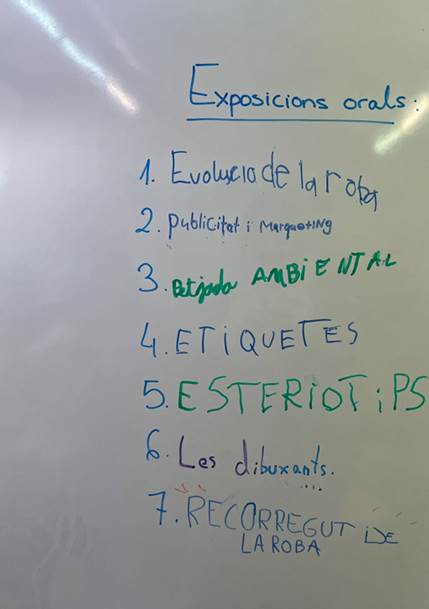 Exposicions orals:
1. Evolucio de la roba
2. Publicitat i Marqueting
3. Petjada AMBiENTAL
4. ETiQUETES
5. ESTERiOTiPS
6. Les dibuxants.
7. RECORREGUT DE
LA ROBA